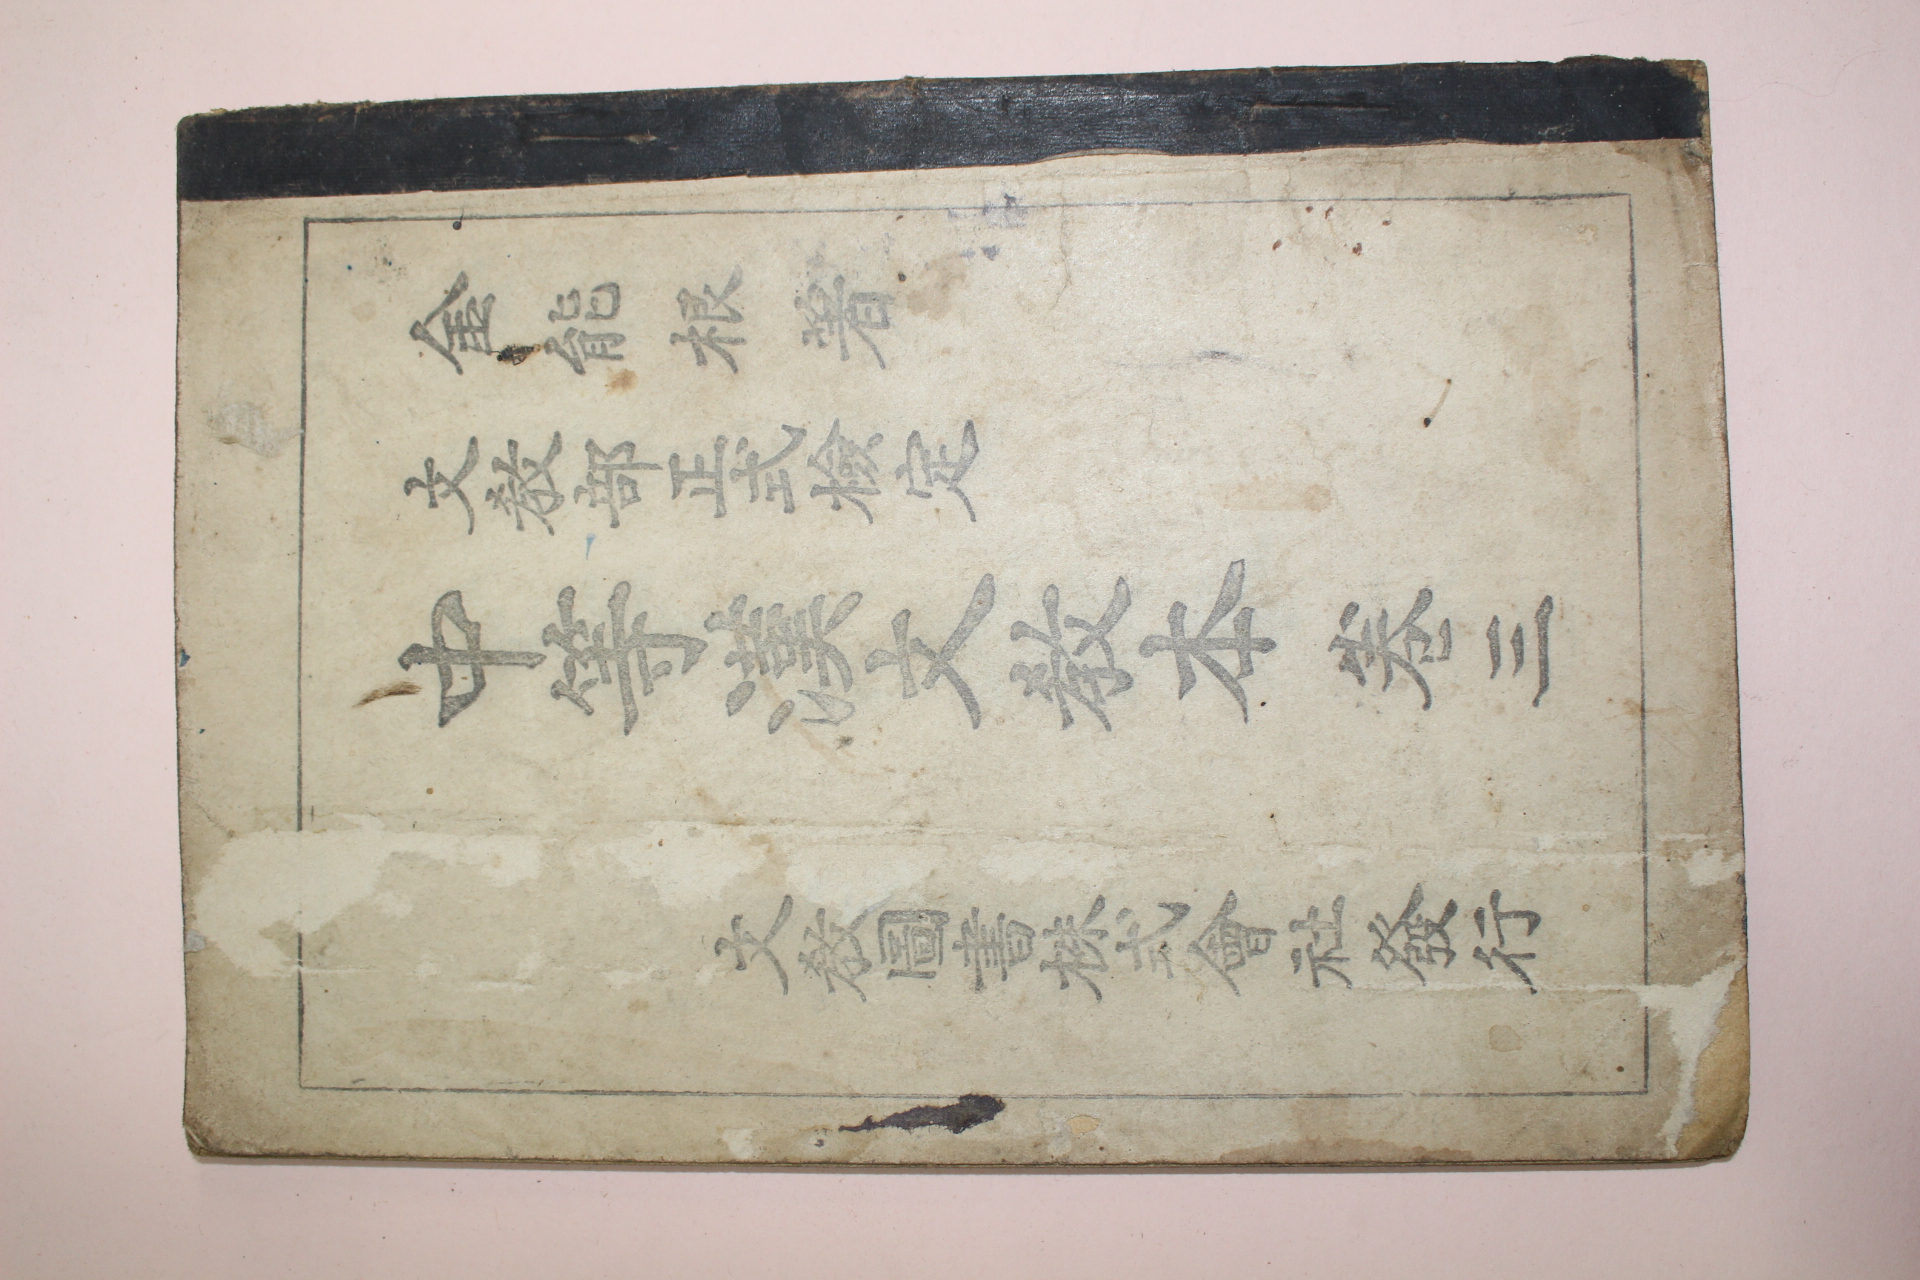 金能根 著
文敎部正式檢定
中等漢文敎本 卷三
文敎圖書株式會社發行